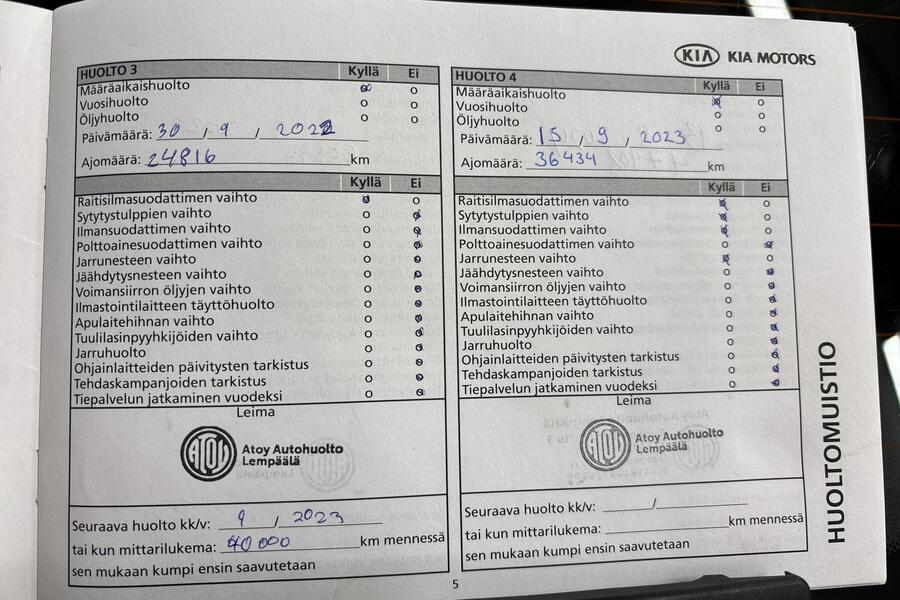 KIA KIA MOTORS
HUOLTO 3 Kyllä Ei
Määräaikaishuolto
Vuosihuolto
Öljyhuolto
Päivämäärä: 30 , 9 , 2022
Ajomäärä: 24816 km
Kyllä Ei
Raitisilmasuodattimen vaihto
Sytytystulppien vaihto
Ilmansuodattimen vaihto
Polttoainesuodattimen vaihto
Jarrunesteen vaihto
Jäähdytysnesteen vaihto
Voimansiirron öljyjen vaihto
Ilmastointilaitteen täyttöhuolto
Apulaitehihnan vaihto
Tuulilasinpyyhkijöiden vaihto
Jarruhuolto
Ohjainlaitteiden päivitysten tarkistus
Tehdaskampanjoiden tarkistus
Tiepalvelun jatkaminen vuodeksi
Leima
ATOY Atoy Autohuolto
Lempäälä
Seuraava huolto kk/v: 9 / 2023
tai kun mittarilukema: 40 000 km mennessä
sen mukaan kumpi ensin saavutetaan
HUOLTO 4 Kyllä Ei
Määräaikaishuolto
Vuosihuolto
Öljyhuolto
Päivämäärä: 15 , 9 , 2023
Ajomäärä: 36434 km
Kyllä Ei
Raitisilmasuodattimen vaihto
Sytytystulppien vaihto
Ilmansuodattimen vaihto
Polttoainesuodattimen vaihto
Jarrunesteen vaihto
Jäähdytysnesteen vaihto
Voimansiirron öljyjen vaihto
Ilmastointilaitteen täyttöhuolto
Apulaitehihnan vaihto
Tuulilasinpyyhkijöiden vaihto
Jarruhuolto
Ohjainlaitteiden päivitysten tarkistus
Tehdaskampanjoiden tarkistus
Tiepalvelun jatkaminen vuodeksi
Leima
ATOY Atoy Autohuolto
Lempäälä
Seuraava huolto kk/v: /
tai kun mittarilukema: km mennessä
sen mukaan kumpi ensin saavutetaan
HUOLTOMUISTIO
5